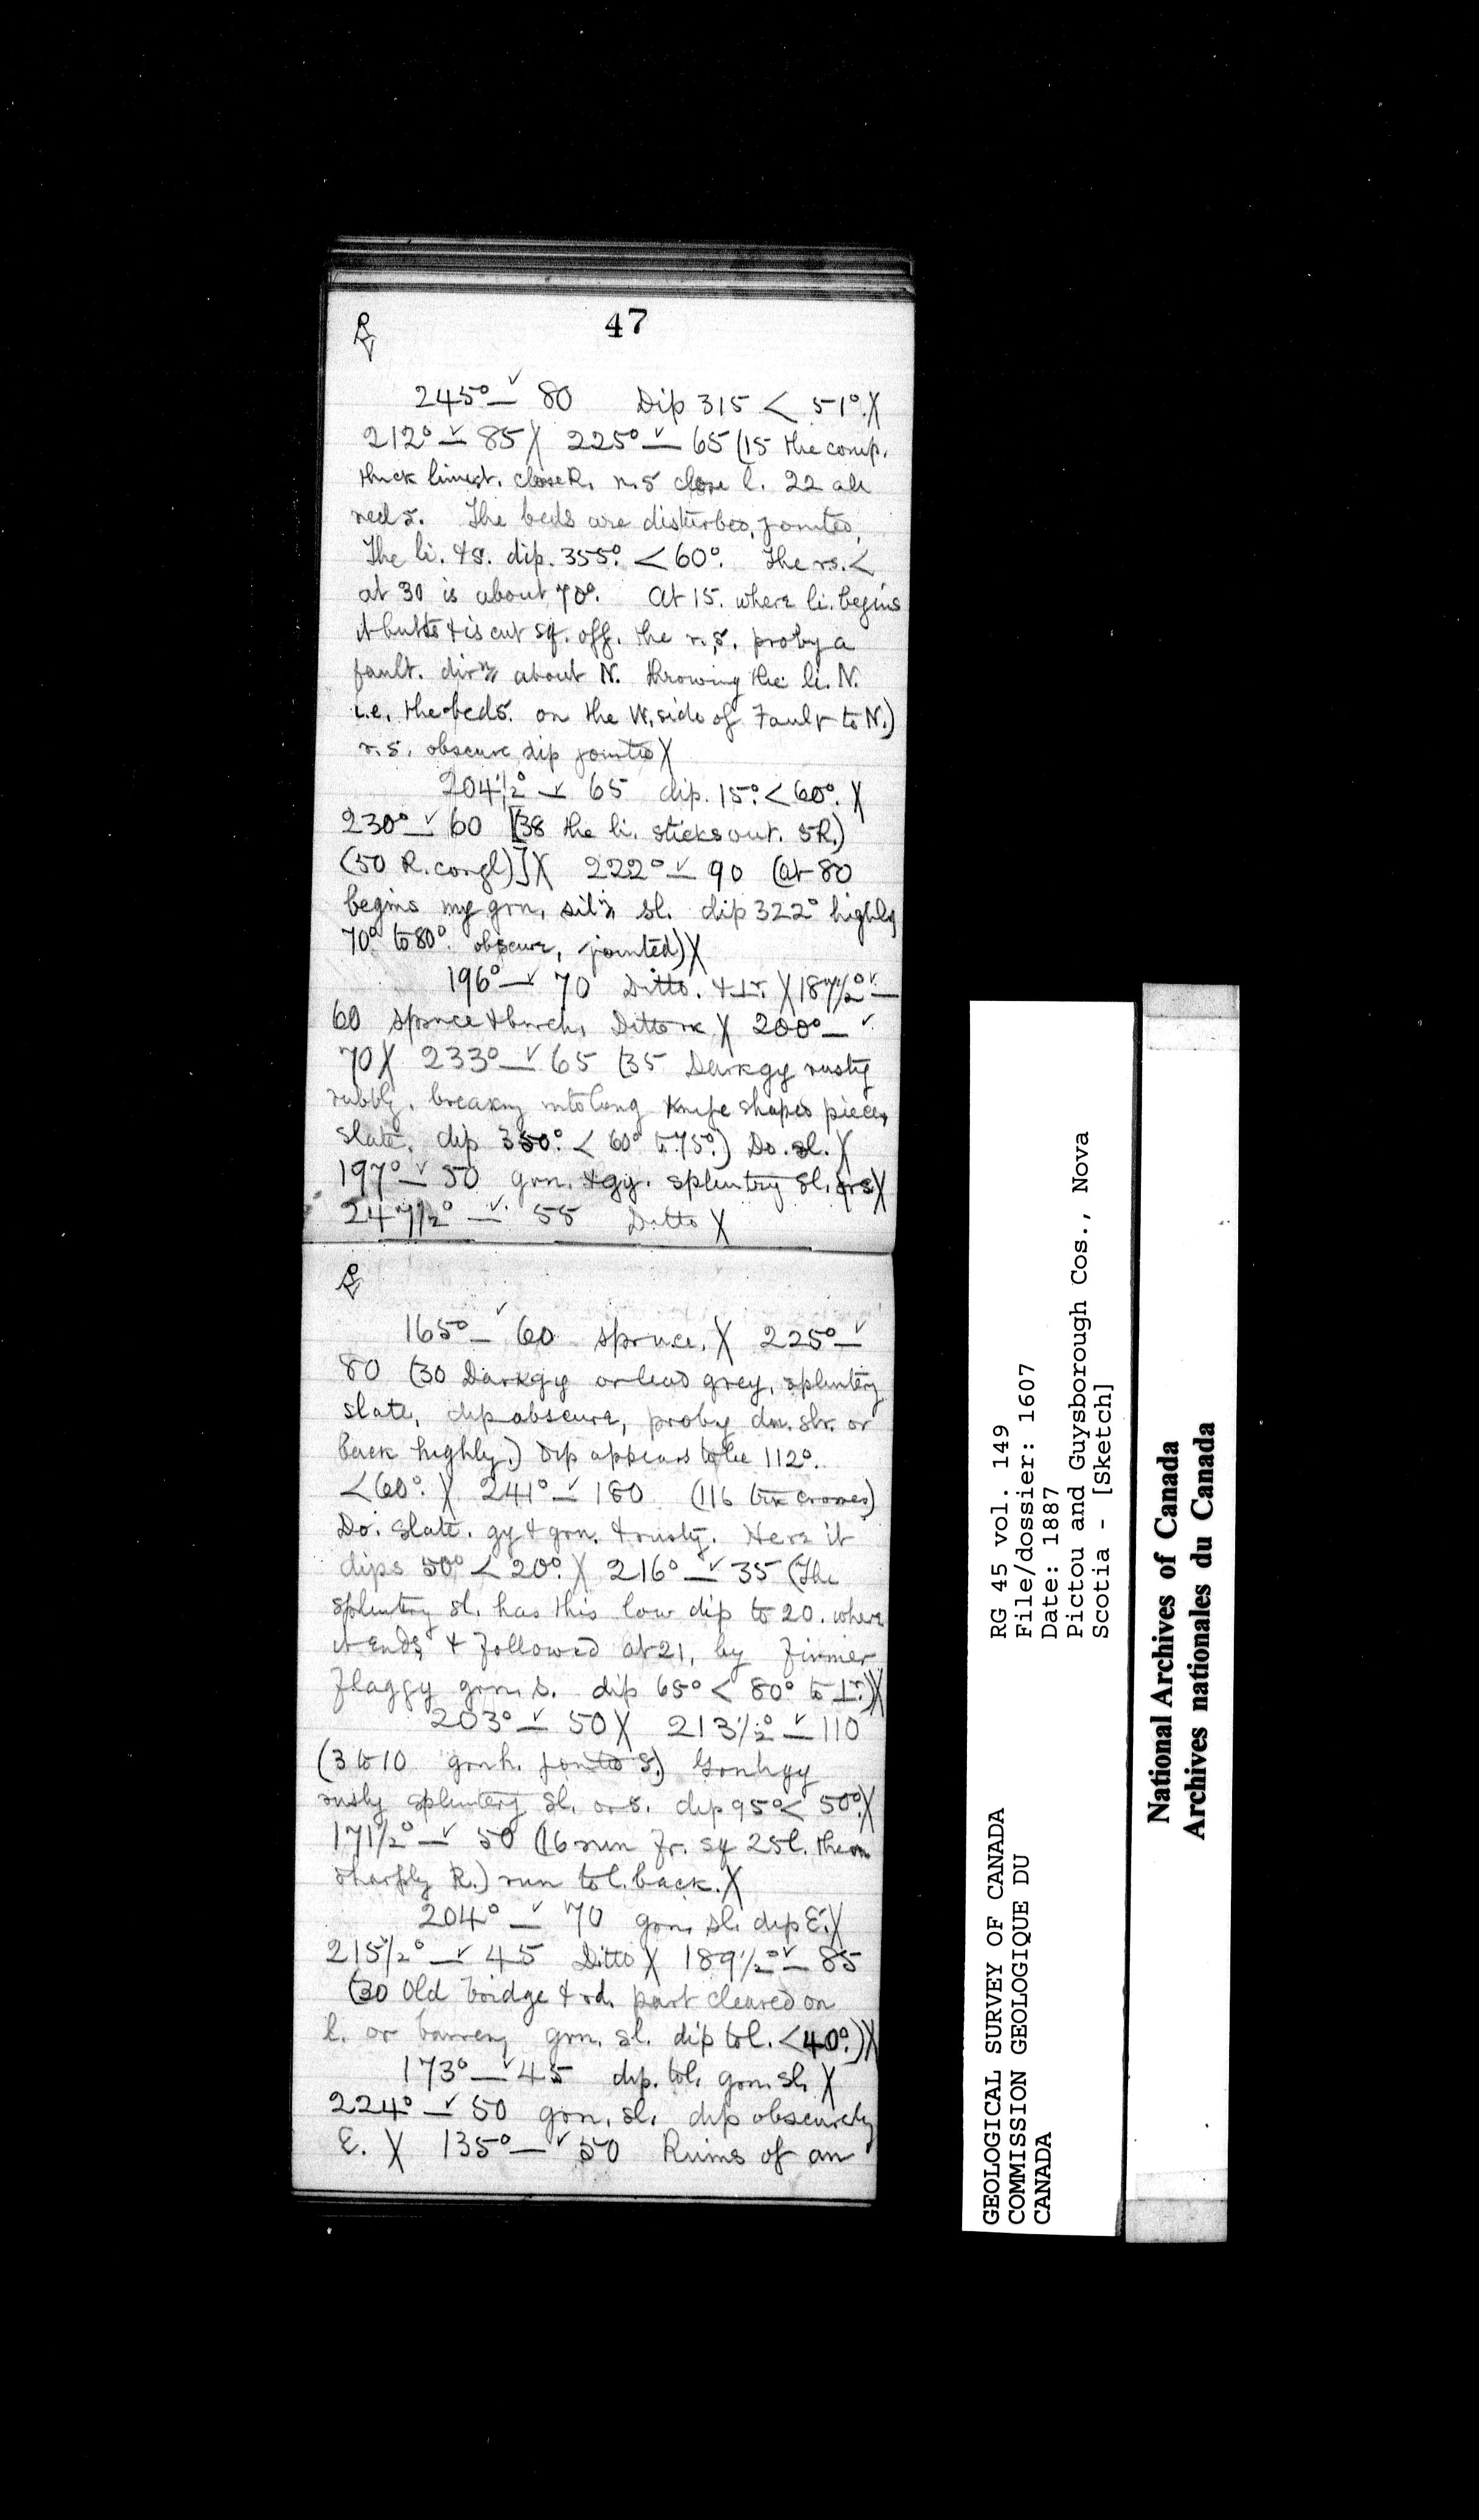 47
245° — 80 Dip 315 < 51°. X
212° — 85 X 225° — 65 (15 the comp.
thick limest. close R. r.s close l. 22 all
red s. The beds are disturbed, jointed,
The li. & s. dip. 355°. < 60°. The rs. <
at 30 is about 70°. At 15. where li. begins
it butts & is cut sq. off. the r.s. proby a
fault. dirn about N. throwing the li. N.
i.e. the beds. on the W. side of Fault to N.)
r.s. obscure dip jointed X
204½° — 65 dip. 15°. < 60°. X
230° — 60 [38 the li. sticks out. 5R.)
(50 R. congl)] X 222° — 90 (at 80
begins my grn, sil'n sl. dip 322° highly
70° to 80°. obscure, jointed) X
196° — 70 Ditto. & ⊥r. X 187½° —
60 spruce & birch. Ditto rk X 200° —
70 X 233° — 65 (35 Dark gy rusty
rubbly. breakng into long knife shaped pieces
slate. dip 350°. < 60° to 75°.) Do. sl. X
197° — 50 grn. & gy. splintery sl. X
247½° — 55 Ditto X
165° — 60 spruce. X 225° —
80 (30 Dark gy or lead grey, splintery
slate, dip obscure, proby dn. str. or
back highly.) Dip appears to be 112°.
< 60°. X 241° — 180 (116 crosses)
Do. Slate. gy & grn. & rusty. Here it
dips 50° < 20°. X 216° — 35 (The
splintery sl. has this low dip to 20. where
it ends & followed at 21, by firmer
flaggy grn. s. dip 65° < 80° to ⊥r.) X
203° — 50 X 213½° — 110
(3 to 10 grnh. jointed s.) Grnh gy
rusty splintery sl. or s. dip 95° < 50°. X
171½° — 50 (16 run fr. sq 25 l. then
sharply R.) run to l. back. X
204° — 70 grn. sl. dip E. X
215½° — 45 Ditto X 189½° — 85
(30 Old bridge & rd. part cleared on
l. or barren, grn. sl. dip to l. < 40°.) X
173° — 45 dip. to l. grn. sl. X
224° — 50 grn. sl. dip obscurely
E. X 135° — 50 Ruins of an
GEOLOGICAL SURVEY OF CANADA
COMMISSION GEOLOGIQUE DU
CANADA
RG 45 vol. 149
File/dossier: 1607
Date: 1887
Pictou and Guysborough Cos., Nova
Scotia - [Sketch]
National Archives of Canada
Archives nationales du Canada